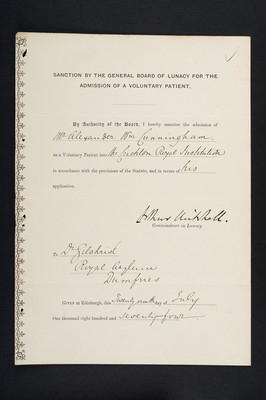 SANCTION BY THE GENERAL BOARD OF LUNACY FOR THE
ADMISSION OF A VOLUNTARY PATIENT.
By Authority of the Board, I hereby sanction the admission of
Mr Alexander Wm Cunningham
as a Voluntary Patient into the Crichton Royal Institution
in accordance with the provisions of the Statute, and in terms of his
application.
Arthur Mitchell.
Commissioner in Lunacy
To Dr Gilchrist
Royal Asylum
Dumfries
GIVEN at Edinburgh, this Twenty ninth day of July
One thousand eight hundred and seventy four